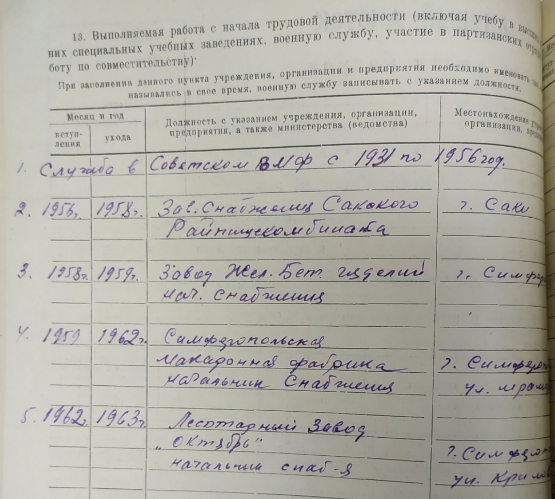 13. Выполняемая работа с начала трудовой деятельности (включая учебу в
них специальных учебных заведениях, военную службу, участие в партизанских
боту по совместительству)
При заполнении данного пункта учреждения, организации и предприятия необходимо именовать
назывались в свое время, военную службу записывать с указанием должности.
Месяц и год
вступ-
ления
ухода
Должность с указанием учреждения, организации,
предприятия, а также министерства (ведомства)
Местонахождение
организации,
1. Служба в Советском ВМФ с 1931 по 1956 год.
2. 1956г. 1958г. Зав. Снабжения Сакского г. Саки
Райпищекомбината
3. 1958г. 1959г. Завод Жел. Бет. изделий г.
нач. снабжения
4. 1959 1962г. Симферопольская
макаронная фабрика г.
начальник Снабжения ул.
5. 1962г. 1963г. Лесотарный Завод
"Октябрь" г.
начальник снаб-я ул.